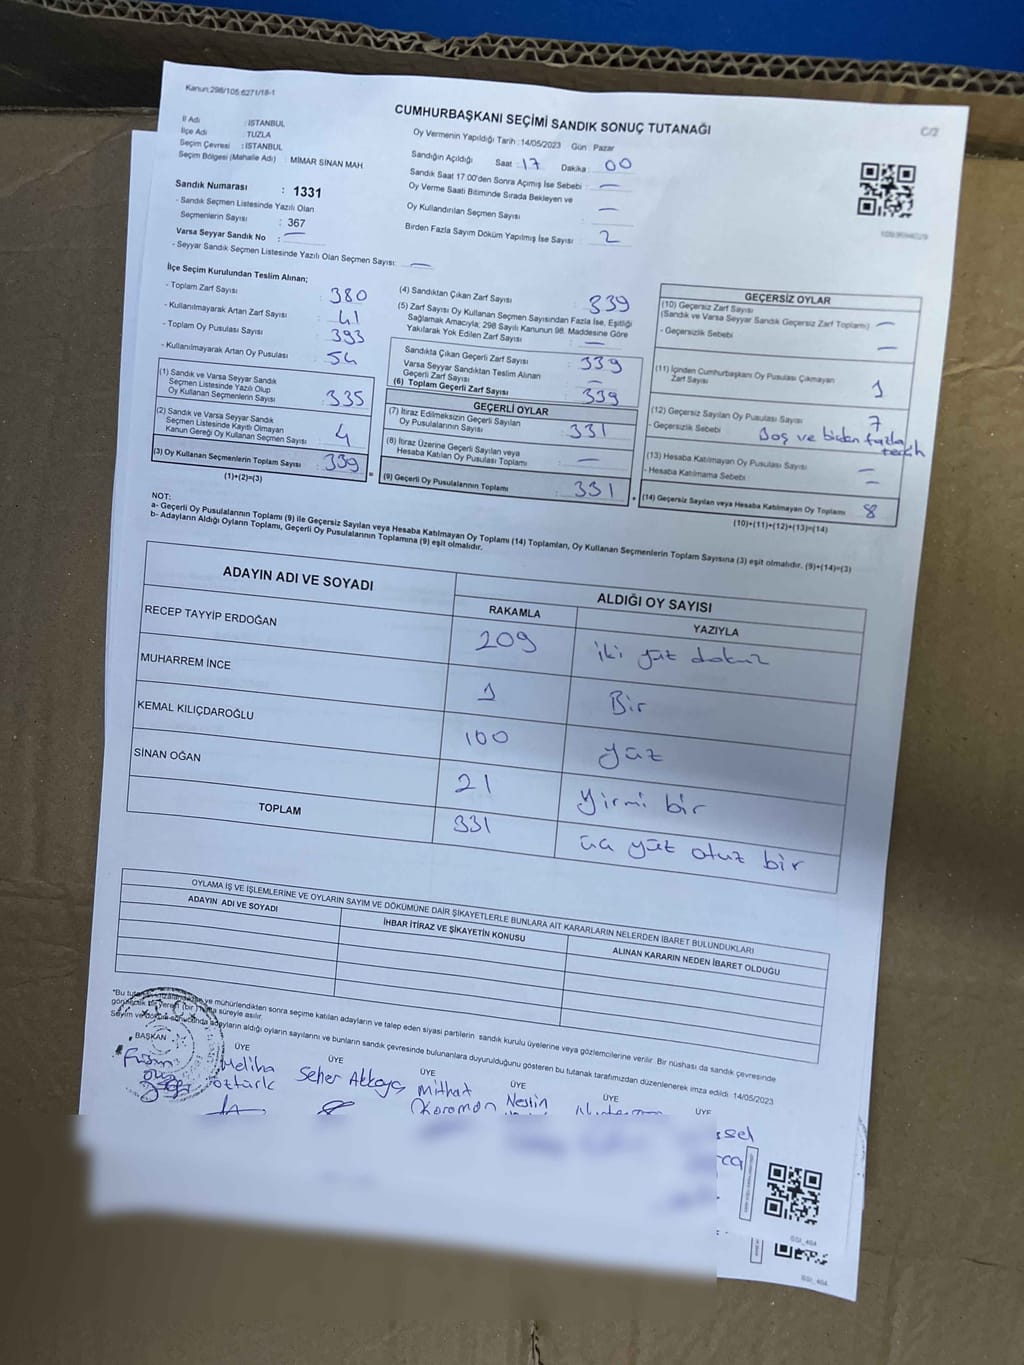 Kanun:298/105:6271/18-1
C/2
CUMHURBAŞKANI SEÇİMİ SANDIK SONUÇ TUTANAĞI
İl Adı : İSTANBUL
İlçe Adı : TUZLA
Seçim Çevresi : İSTANBUL
Seçim Bölgesi (Mahalle Adı) : MİMAR SİNAN MAH.
Oy Vermenin Yapıldığı Tarih : 14/05/2023 Gün : Pazar
Sandığın Açıldığı Saat : 17 Dakika : 00
Sandık Saat 17.00'den Sonra Açımış İse Sebebi : —
Oy Verme Saati Bitiminde Sırada Bekleyen ve
Oy Kullandırılan Seçmen Sayısı : —
Birden Fazla Sayım Döküm Yapılmış İse Sayısı : 2
Sandık Numarası : 1331
- Sandık Seçmen Listesinde Yazılı Olan
Seçmenlerin Sayısı : 367
Varsa Seyyar Sandık No : —
- Seyyar Sandık Seçmen Listesinde Yazılı Olan Seçmen Sayısı: —
İlçe Seçim Kurulundan Teslim Alınan;
- Toplam Zarf Sayısı : 380
- Kullanılmayarak Artan Zarf Sayısı : 41
- Toplam Oy Pusulası Sayısı : 393
- Kullanılmayarak Artan Oy Pusulası : 54
(1) Sandık ve Varsa Seyyar Sandık
Seçmen Listesinde Yazılı Olup
Oy Kullanan Seçmenlerin Sayısı : 335
(2) Sandık ve Varsa Seyyar Sandık
Seçmen Listesinde Kayıtlı Olmayan
Kanun Gereği Oy Kullanan Seçmen Sayısı : 4
(3) Oy Kullanan Seçmenlerin Toplam Sayısı : 339
(1)+(2)=(3)
(4) Sandıktan Çıkan Zarf Sayısı : 339
(5) Zarf Sayısı Oy Kullanan Seçmen Sayısından Fazla İse, Eşitliği
Sağlamak Amacıyla; 298 Sayılı Kanunun 98. Maddesine Göre
Yakılarak Yok Edilen Zarf Sayısı : —
Sandıkta Çıkan Geçerli Zarf Sayısı : 339
Varsa Seyyar Sandıktan Teslim Alınan
Geçerli Zarf Sayısı : —
(6) Toplam Geçerli Zarf Sayısı : 339
GEÇERLİ OYLAR
(7) İtiraz Edilmeksizin Geçerli Sayılan
Oy Pusulalarının Sayısı : 331
(8) İtiraz Üzerine Geçerli Sayılan veya
Hesaba Katılan Oy Pusulası Toplamı : —
(9) Geçerli Oy Pusulalarının Toplamı : 331
GEÇERSİZ OYLAR
(10) Geçersiz Zarf Sayısı
(Sandık ve Varsa Seyyar Sandık Geçersiz Zarf Toplamı) : —
- Geçersizlik Sebebi : —
(11) İçinden Cumhurbaşkanı Oy Pusulası Çıkmayan
Zarf Sayısı : 1
(12) Geçersiz Sayılan Oy Pusulası Sayısı : 7
- Geçersizlik Sebebi : Boş ve birden fazla
tercih
(13) Hesaba Katılmayan Oy Pusulası Sayısı : —
- Hesaba Katılmama Sebebi : —
(14) Geçersiz Sayılan veya Hesaba Katılmayan Oy Toplamı : 8
(10)+(11)+(12)+(13)=(14)
NOT:
a- Geçerli Oy Pusulalarının Toplamı (9) ile Geçersiz Sayılan veya Hesaba Katılmayan Oy Toplamı (14) Toplamları, Oy Kullanan Seçmenlerin Toplam Sayısına (3) eşit olmalıdır. (9)+(14)=(3)
b- Adayların Aldığı Oyların Toplamı, Geçerli Oy Pusulalarının Toplamına (9) eşit olmalıdır.
ADAYIN ADI VE SOYADI ALDIĞI OY SAYISI
RAKAMLA YAZIYLA
RECEP TAYYİP ERDOĞAN 209 iki yüz dokuz
MUHARREM İNCE 1 Bir
KEMAL KILIÇDAROĞLU 100 yüz
SİNAN OĞAN 21 yirmi bir
TOPLAM 331 üç yüz otuz bir
OYLAMA İŞ VE İŞLEMLERİNE VE OYLARIN SAYIM VE DÖKÜMÜNE DAİR ŞİKAYETLERLE BUNLARA AİT KARARLARIN NELERDEN İBARET BULUNDUKLARI
ADAYIN ADI VE SOYADI İHBAR İTİRAZ VE ŞİKAYETİN KONUSU ALINAN KARARIN NEDEN İBARET OLDUĞU
"Bu ve mühürlendikten sonra seçime katılan adayların ve talep eden siyasi partilerin sandık kurulu üyelerine veya gözlemcilerine verilir. Bir nüshası da sandık çevresinde
süreyle asılır.
Sayım ve adayların aldığı oyların sayılarını ve bunların sandık çevresinde bulunanlara duyurulduğunu gösteren bu tutanak tarafımızdan düzenlenerek imza edildi 14/05/2023
BAŞKAN ÜYE ÜYE ÜYE ÜYE ÜYE ÜYE
Meliha
Öztürk
Seher Akkaya
Mithat
Karaman
Nesrin
GSI_404
GSI_404